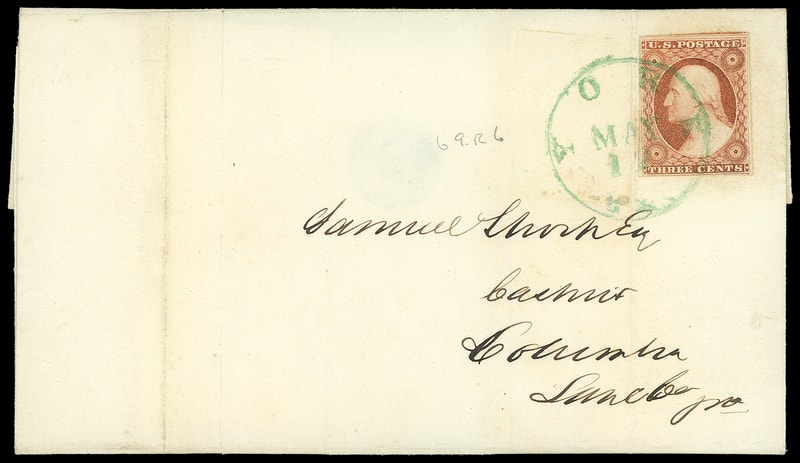 U.S. POSTAGE
THREE CENTS
YORK
MAY
Pa
69.R6
Samuel Shoch Esq
Cashier
Columbia
Lanc Co
Pa